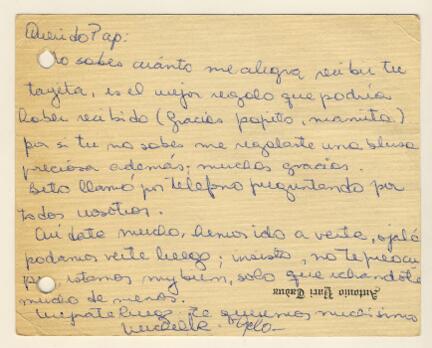 Querido Pap:
No sabes cuánto me alegra recibir tu
tarjeta, es el mejor regalo que podría
haber recibido (Gracias papito, mamita)
por si tu no sabes me regalaste una blusa
preciosa además; muchas gracias.
Beto llamó por teléfono preguntando por
todos nosotros.
Cuídate mucho, hemos ido a verte, ojalá
podamos verte luego; insisto, no te preocu
pes, estamos muy bien, solo que echandote
mucho de menos.
Antonio Yari
luego. Te queremos muchísimo